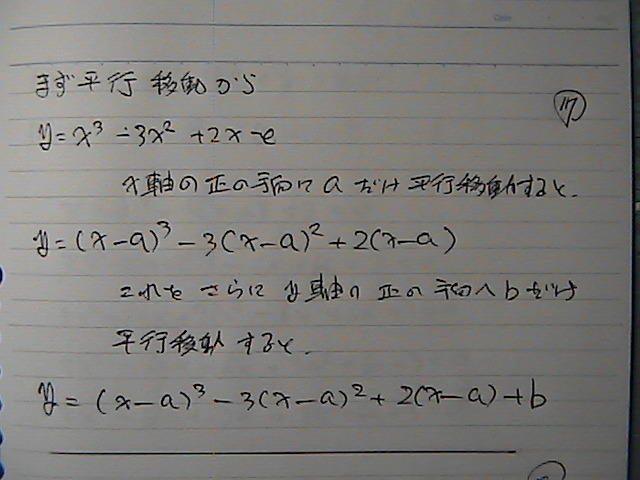 まず平行移動から
⑰
y=x³-3x²+2x-e
x軸の正の方向に a だけ平行移動すると.
y=(x-a)³-3(x-a)²+2(x-a)
これを さらに y軸の正の方向へ b だけ
平行移動すると.
y=(x-a)³-3(x-a)²+2(x-a)+b